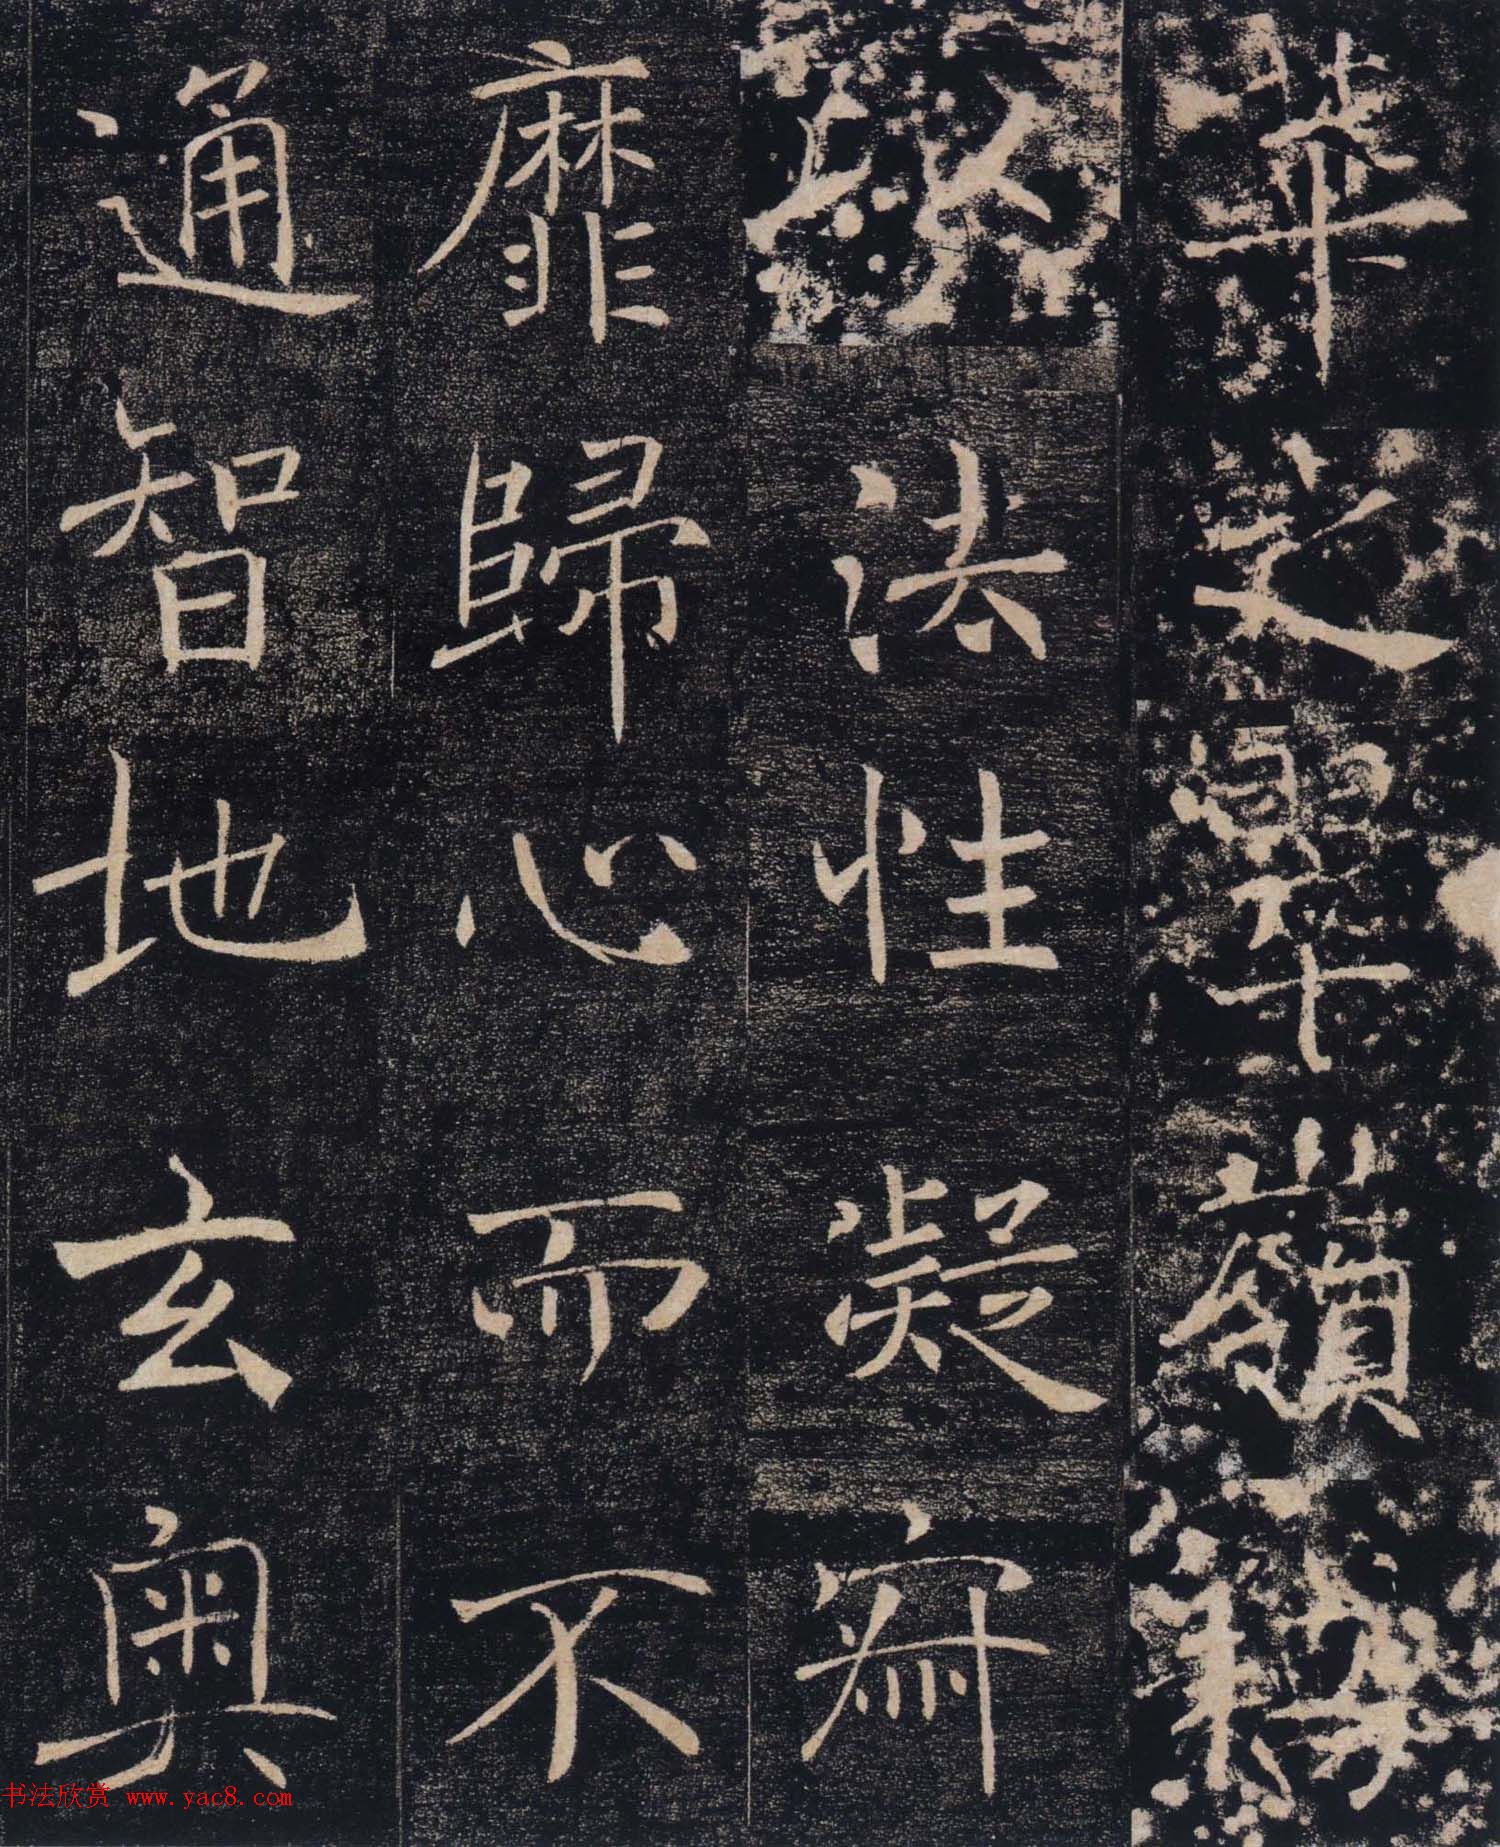 華之翠嶺
法性凝寂
靡歸心而不
通智地玄奥
书法欣赏 www.yac8.com